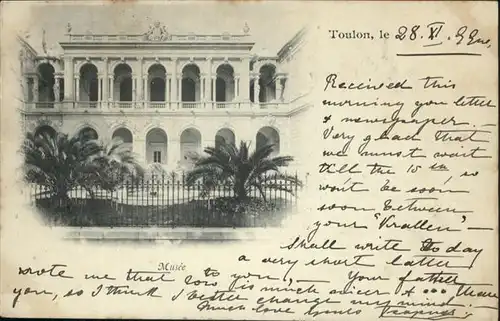 Toulon, le 28. XI. 99
Received this
morning you letter
& newspaper
Very glad that
we must wait
till the 15th, so
wont be soon
soon between
your "Krallen" —
Shall write to day
a very short letter
to you, — Your father
wrote me that is much nicer & than
you, so I think I better change my mind
Much love yours
Musée